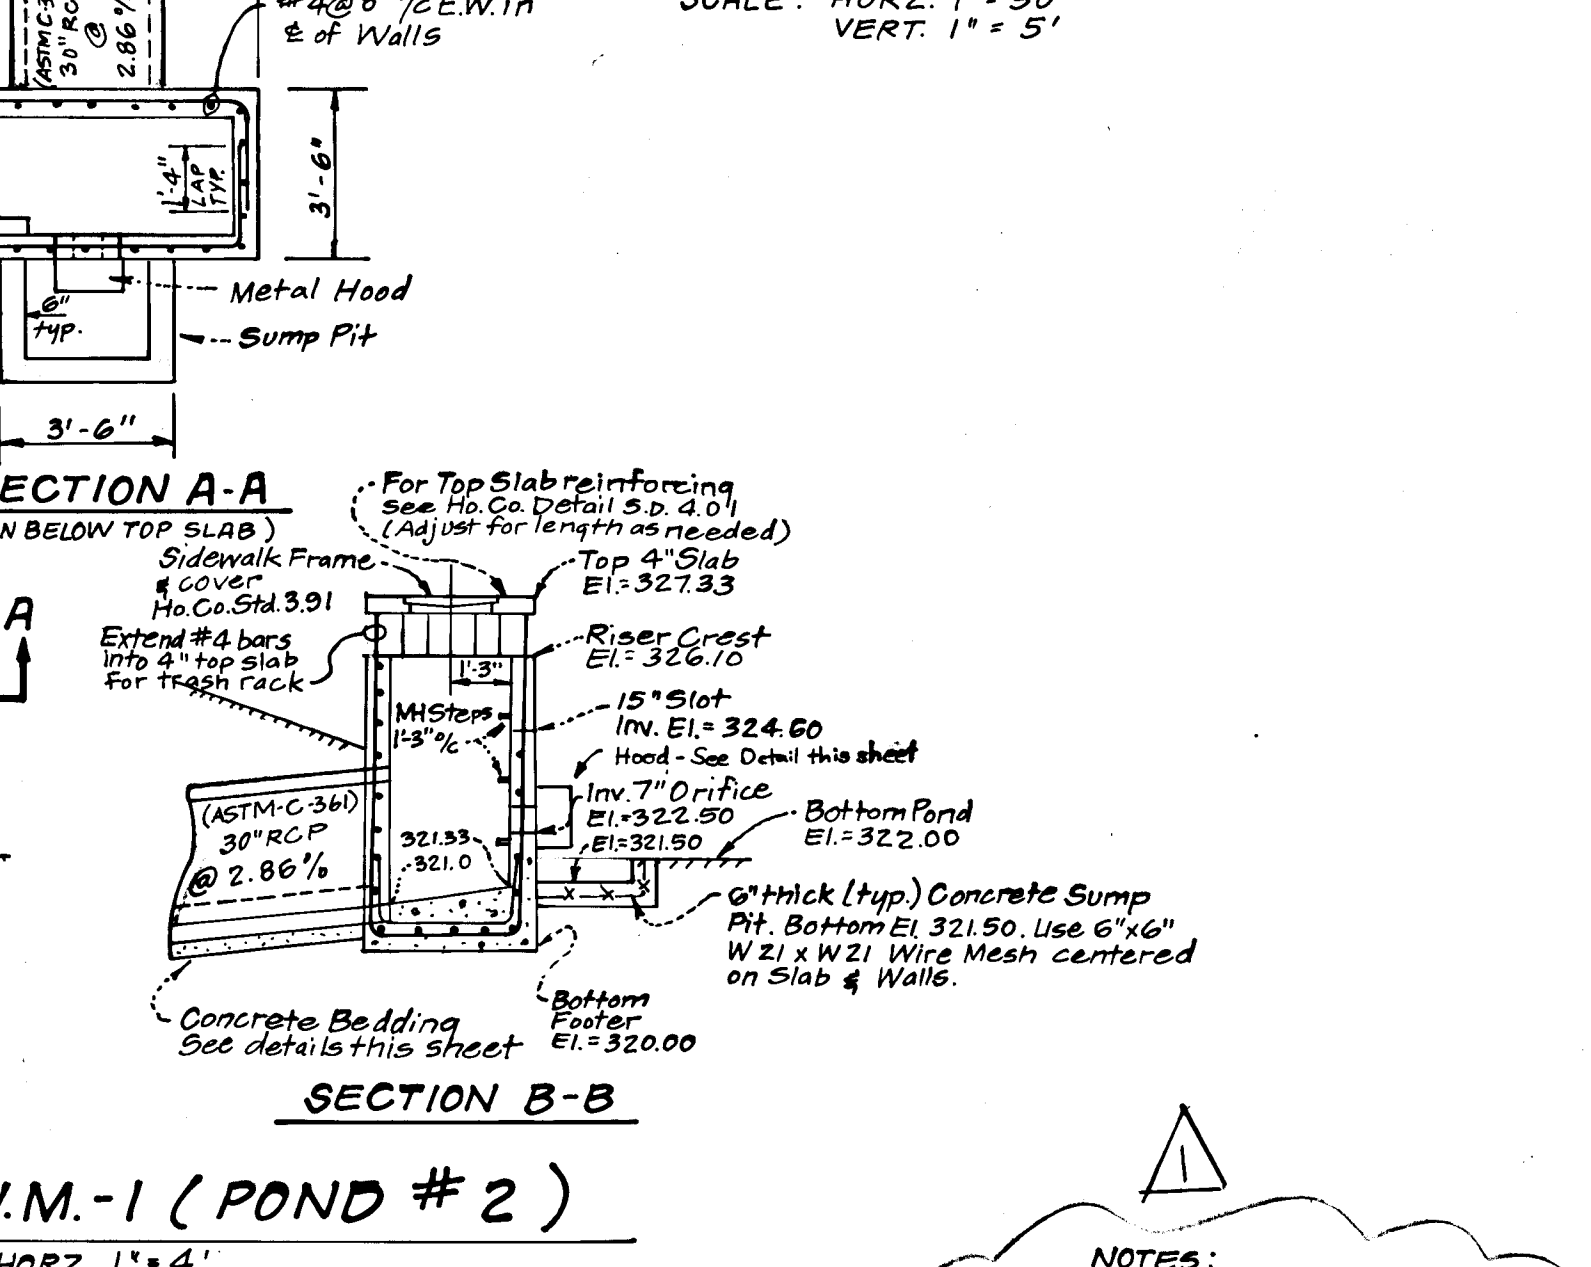 (ASTM C-3
30" RC
@
2.86%
#4@6" o/c E.W. in
℄ of Walls
SCALE: HORZ. 1" = 50'
VERT. 1" = 5'
1'-4"
LAP
TYP.
3'-6"
Metal Hood
6"
typ.
Sump Pit
3'-6"
ECTION A-A
N BELOW TOP SLAB)
A
For Top Slab reinforcing
see Ho. Co. Detail S.D. 4.01
(Adjust for length as needed)
Sidewalk Frame
& cover
Ho.Co.Std. 3.91
Top 4" Slab
El.= 327.33
Extend #4 bars
into 4" top slab
for trash rack
Riser Crest
El.= 326.10
1'-3"
MH Steps
1'-3" o/c
15" Slot
Inv. El.= 324.60
Hood - See Detail this sheet
Inv. 7" Orifice
El.= 322.50
El.= 321.50
Bottom Pond
El.= 322.00
(ASTM-C-361)
30" RCP
@ 2.86%
321.33
321.0
6" thick (typ.) Concrete Sump
Pit. Bottom El. 321.50. Use 6"x6"
W21 x W21 Wire Mesh centered
on Slab & Walls.
Concrete Bedding
See details this sheet
Bottom
Footer
El.= 320.00
SECTION B-B
.M.-1 (POND #2)
HORZ. 1" = 4'
1
NOTES: